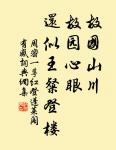 故国山川
故园心眼
還似王粲登楼
周密一萼红登蓬莱阁
有感词典名集